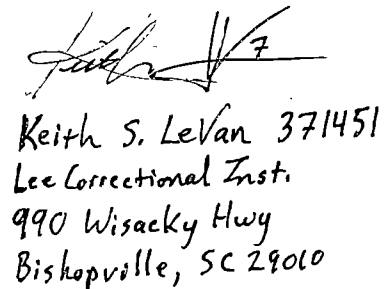 Keith S. LeVan 371451
Lee Correctional Inst.
990 Wisacky Hwy
Bishopville, SC 29010